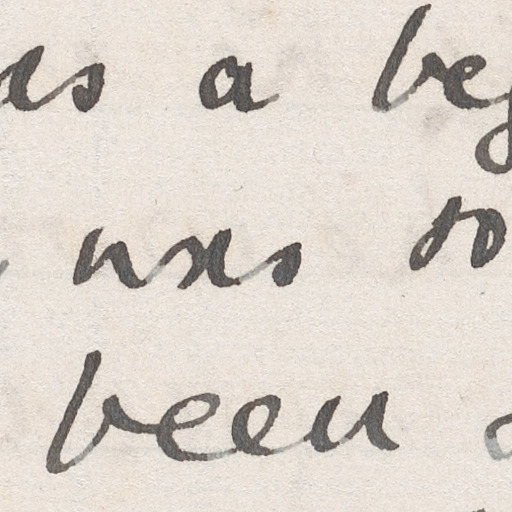 as a beg
was so
been